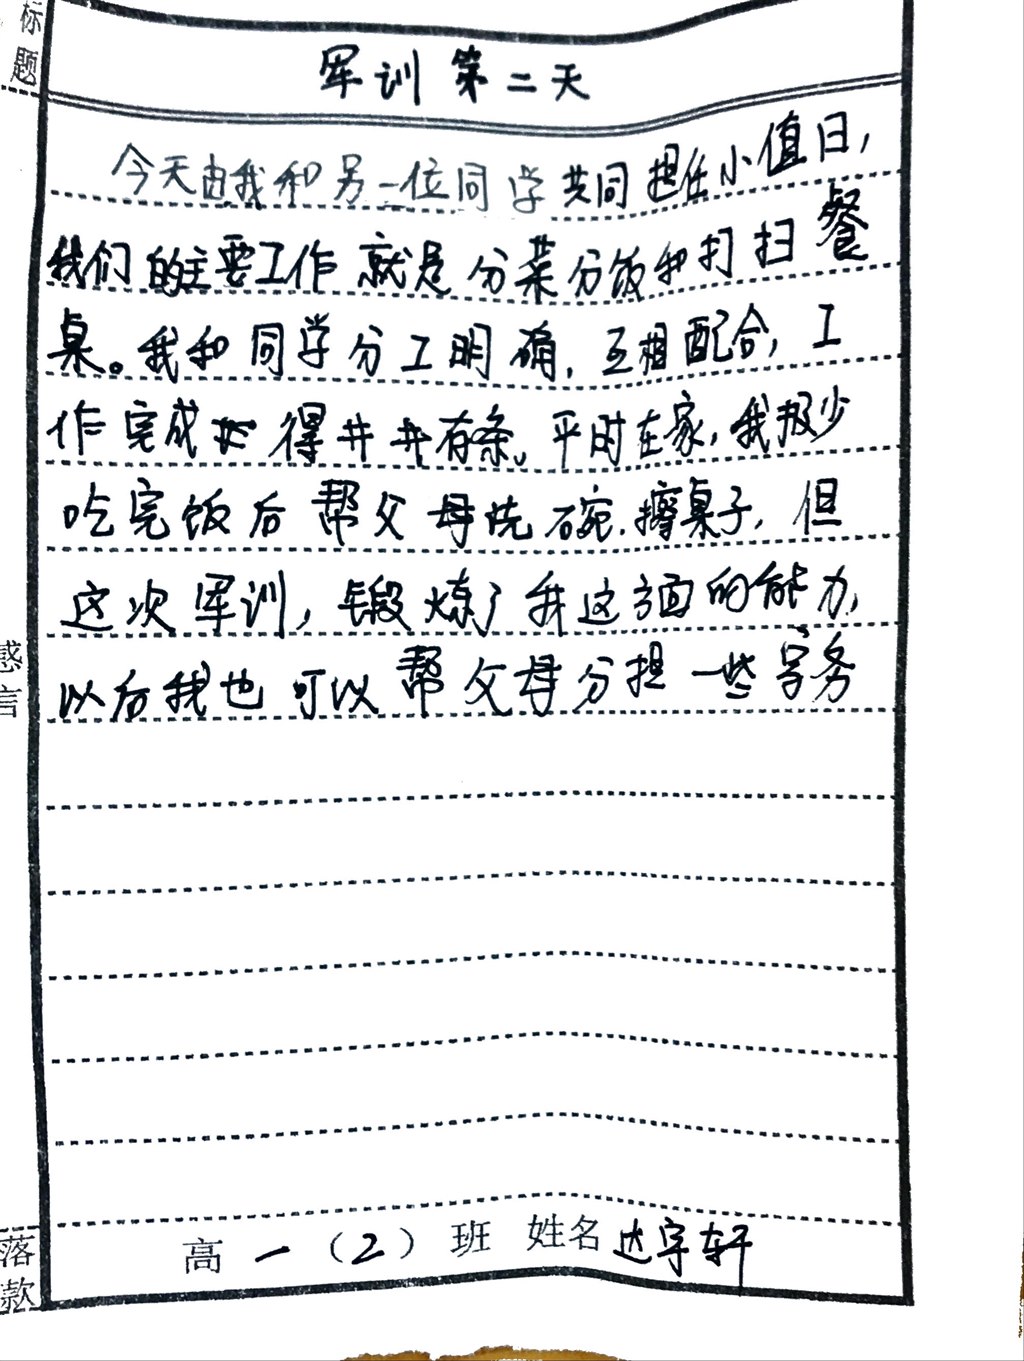 标题
军训第二天
今天由我和另一位同学共同担任小值日，
我们的主要工作就是分菜分饭和打扫餐
桌。我和同学分工明确，互相配合，工
作完成得井井有条。平时在家，我极少
吃完饭后帮父母洗碗．擦桌子，但
这次军训，锻炼了我这方面的能力，
以后我也可以帮父母分担一些家务
感言
落款
高一（2）班 姓名达宇轩